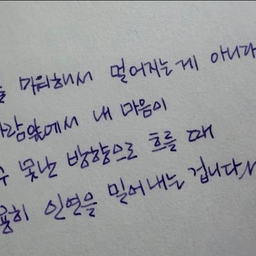 미워해서 멀어지는게 아니다
사람앞에서 내 마음이
못난 방향으로 흐를 때
인연을 밀어내는 겁니다